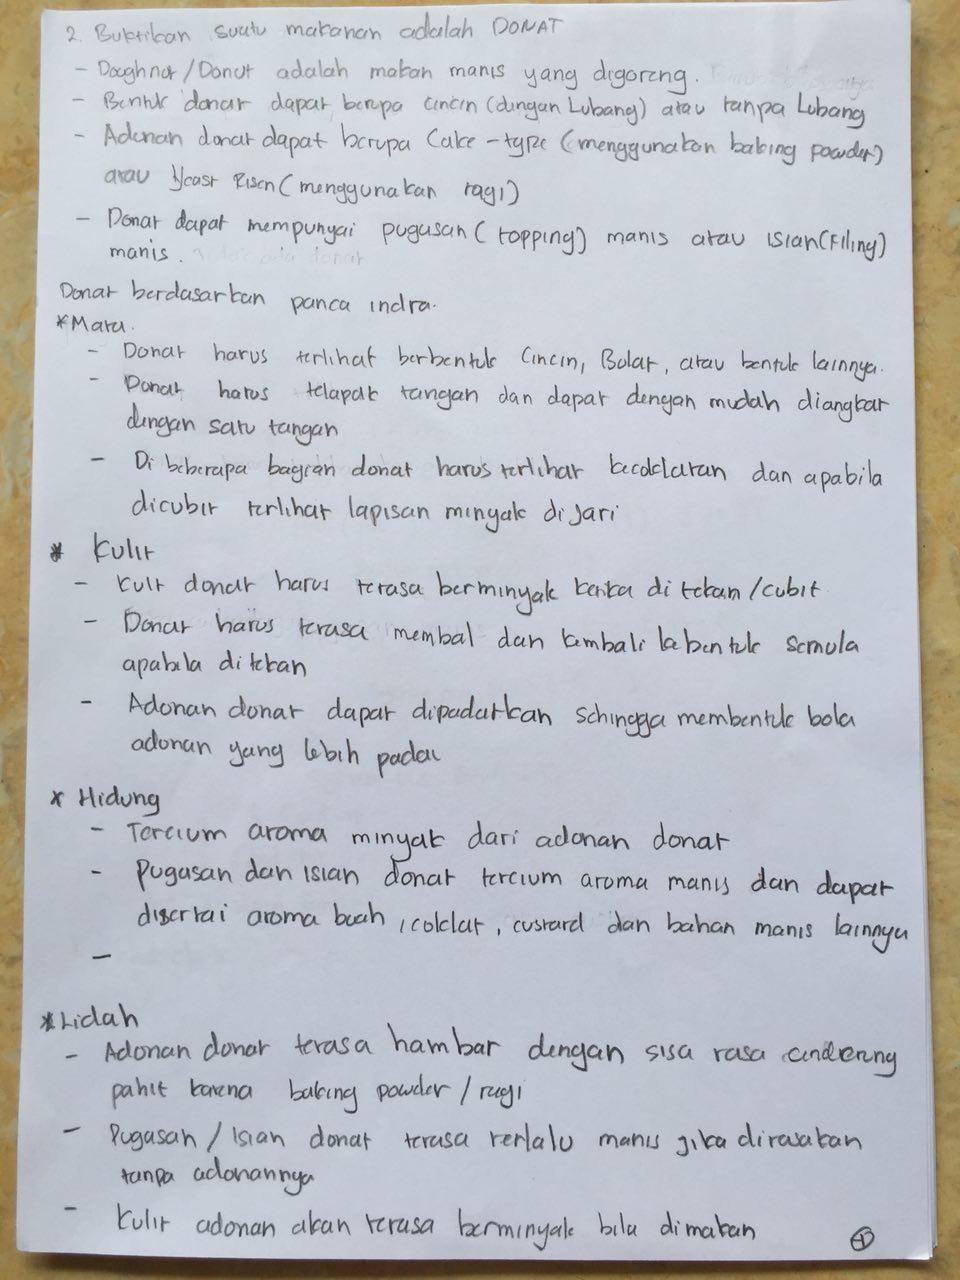 2. Buktikan suatu makanan adalah DONAT
- Doughnut/Donut adalah makan manis yang digoreng.
- Bentuk donat dapat berupa cincin (dengan Lubang) atau tanpa Lubang
- Adonan donat dapat berupa Cake-type (menggunakan baking powder)
atau Yeast Risen (menggunakan ragi)
- Donat dapat mempunyai pugasan (topping) manis atau isian (Filing)
manis.
Donat berdasarkan panca indra.
*Mata.
- Donat harus terlihat berbentuk Cincin, Bulat, atau bentuk lainnya.
- Donat harus telapak tangan dan dapat dengan mudah diangkat
dengan satu tangan
- Di beberapa bagian donat harus terlihat kecoklatan dan apabila
dicubit terlihat lapisan minyak di jari
* Kulit
- Kulit donat harus terasa berminyak ketika di tekan/cubit
- Donat harus terasa membal dan kembali ke bentuk semula
apabila di tekan
- Adonan donat dapat dipadatkan sehingga membentuk bola
adonan yang lebih padat
* Hidung
- Tercium aroma minyak dari adonan donat
- Pugasan dan isian donat tercium aroma manis dan dapat
disertai aroma buah, coklat, custard dan bahan manis lainnya
-
*Lidah
- Adonan donat terasa hambar dengan sisa rasa cenderung
pahit karena baking powder/ragi
- Pugasan/Isian donat terasa terlalu manis jika dirasakan
tanpa adonannya
- Kulit adonan akan terasa berminyak bila dimakan
1